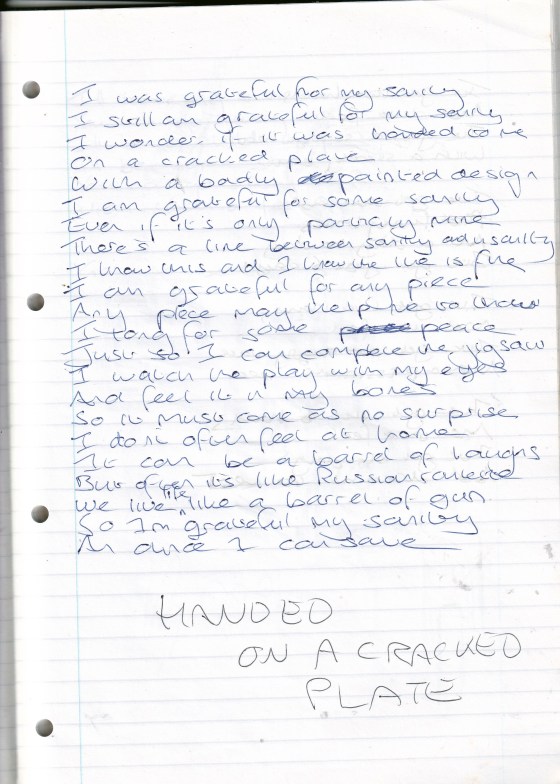 I was grateful for my sanity
I still am grateful for my sanity
I wonder if it was handed to me
On a cracked plate
With a badly painted design
I am grateful for some sanity
Even if it's only partially mine
There's a line between sanity and insanity
I know this and I know the line is fine
I am grateful for any piece
Any piece may help me to know
I long for some peace
Just so I can complete the jigsaw
I watch the play with my eyes
And feel it in my bones
So it must come as no surprise
I don't often feel at home
It can be a barrel of laughs
But often it's like Russian roulette
We live life like a barrel of gun
So I'm grateful my sanity
I can save
HANDED
ON A CRACKED
PLATE